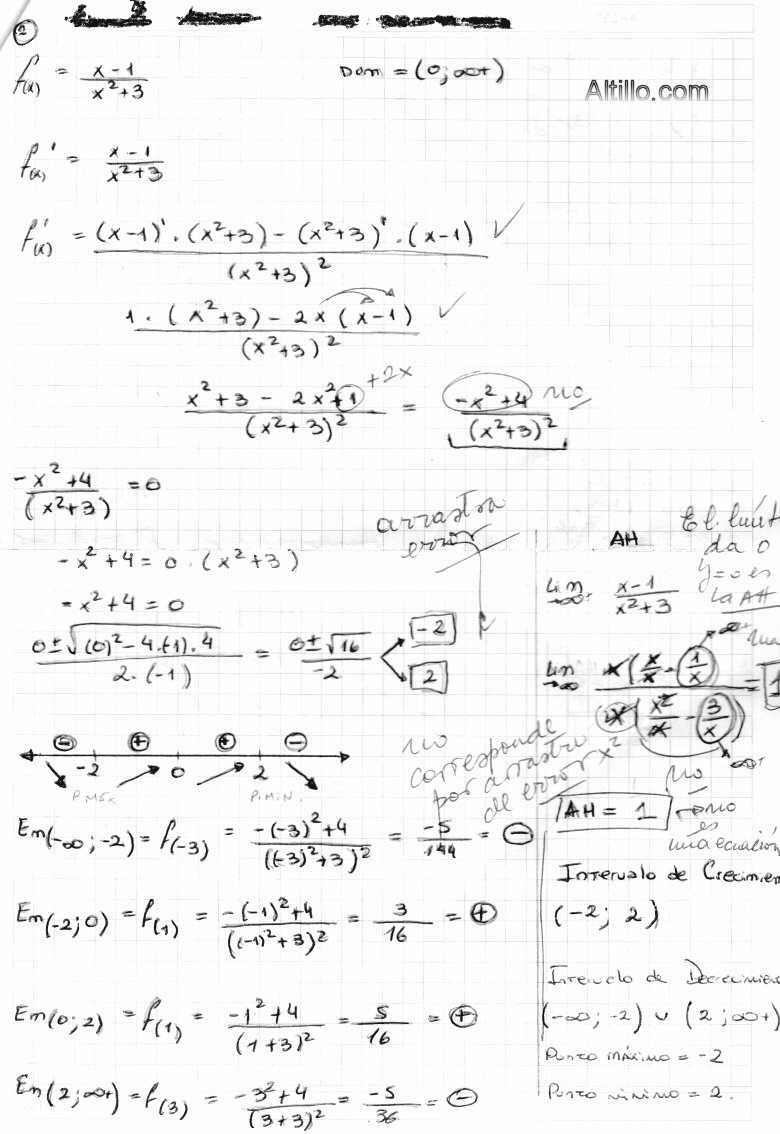 2
f(x) = x-1 / x²+3
Dom = (0; ∞+)
Altillo.com
f(x)' = x-1 / x²+3
f'(x) = (x-1)' . (x²+3) - (x²+3)' . (x-1) / (x²+3)² ✓
1 . (x²+3) - 2x (x-1) / (x²+3)² ✓
x²+3 - 2x²+1 / (x²+3)² = -x²+4 / (x²+3)²
+2x
no
-x²+4 / (x²+3) = 0
-x²+4 = 0 . (x²+3)
-x²+4 = 0
0±√(0)²-4.(-1).4 / 2.(-1) = 0±√16 / -2
-2
2
arrastra
error
- + + -
-2 0 2
P.Máx P.Min.
no
corresponde
por arrastro
de error
En(-∞;-2) = f(-3) = -(-3)²+4 / ((-3)²+3)² = -5 / 144 = -
En(-2;0) = f(1) = -(-1)²+4 / ((-1)²+3)² = 3 / 16 = +
En(0;2) = f(1) = -1²+4 / (1+3)² = 5 / 16 = +
En(2;∞+) = f(3) = -3²+4 / (3+3)² = -5 / 36 = -
AH
El límit
da 0
y=0 es
la AH
Lim →∞+ x-1 / x²+3
Lim →∞ x(x/x - 1/x) / x(x²/x - 3/x) = 1
∞+
x²
∞+
no
AH = 1
→ no
es
una ecuación
Intervalo de Crecimien
(-2; 2)
Intervalo de Decrecimien
(-∞;-2) ∪ (2;∞+)
Punto máximo = -2
Punto mínimo = 2.